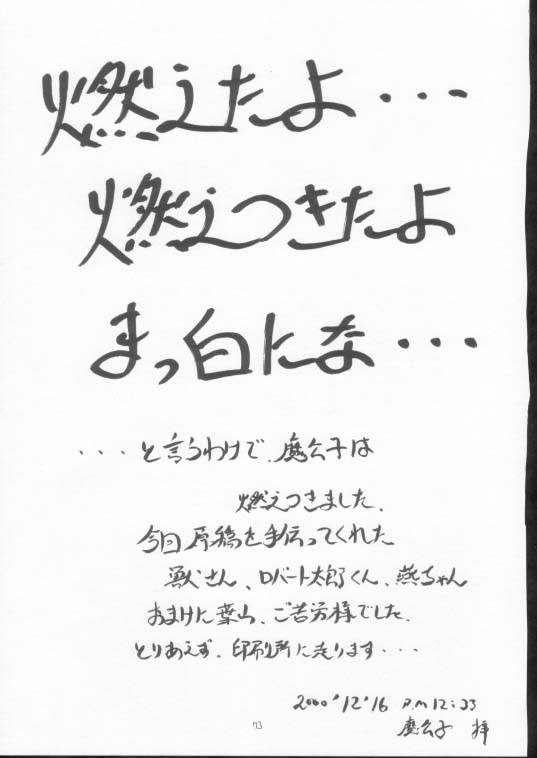 燃えたよ・・・
燃えつきたよ
まっ白にな・・・
・・・と言うわけで、磨公子は
燃えつきました。
今回原稿を手伝ってくれた
獣さん、ロバート太郎くん、燕ちゃん
おまけに葉山、ご苦労様でした。
とりあえず、印刷所に走ります・・・
2000'12'16 P.M12:33
磨公子 拝
73